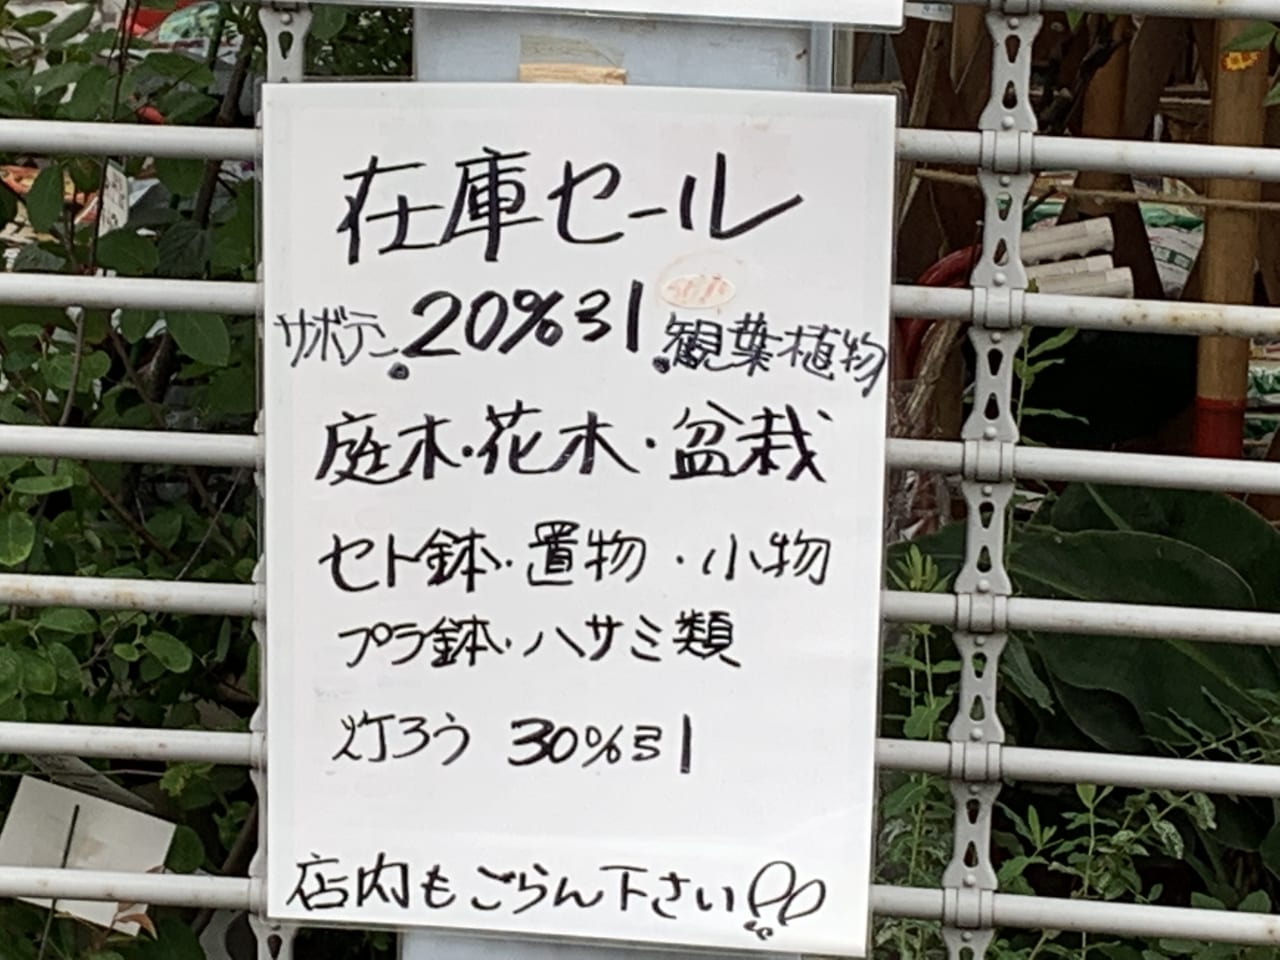 在庫セール
サボテン・20%引・観葉植物
庭木・花木・盆栽
セト鉢・置物・小物
プラ鉢・ハサミ類
灯ろう 30%引
店内もごらん下さい!!